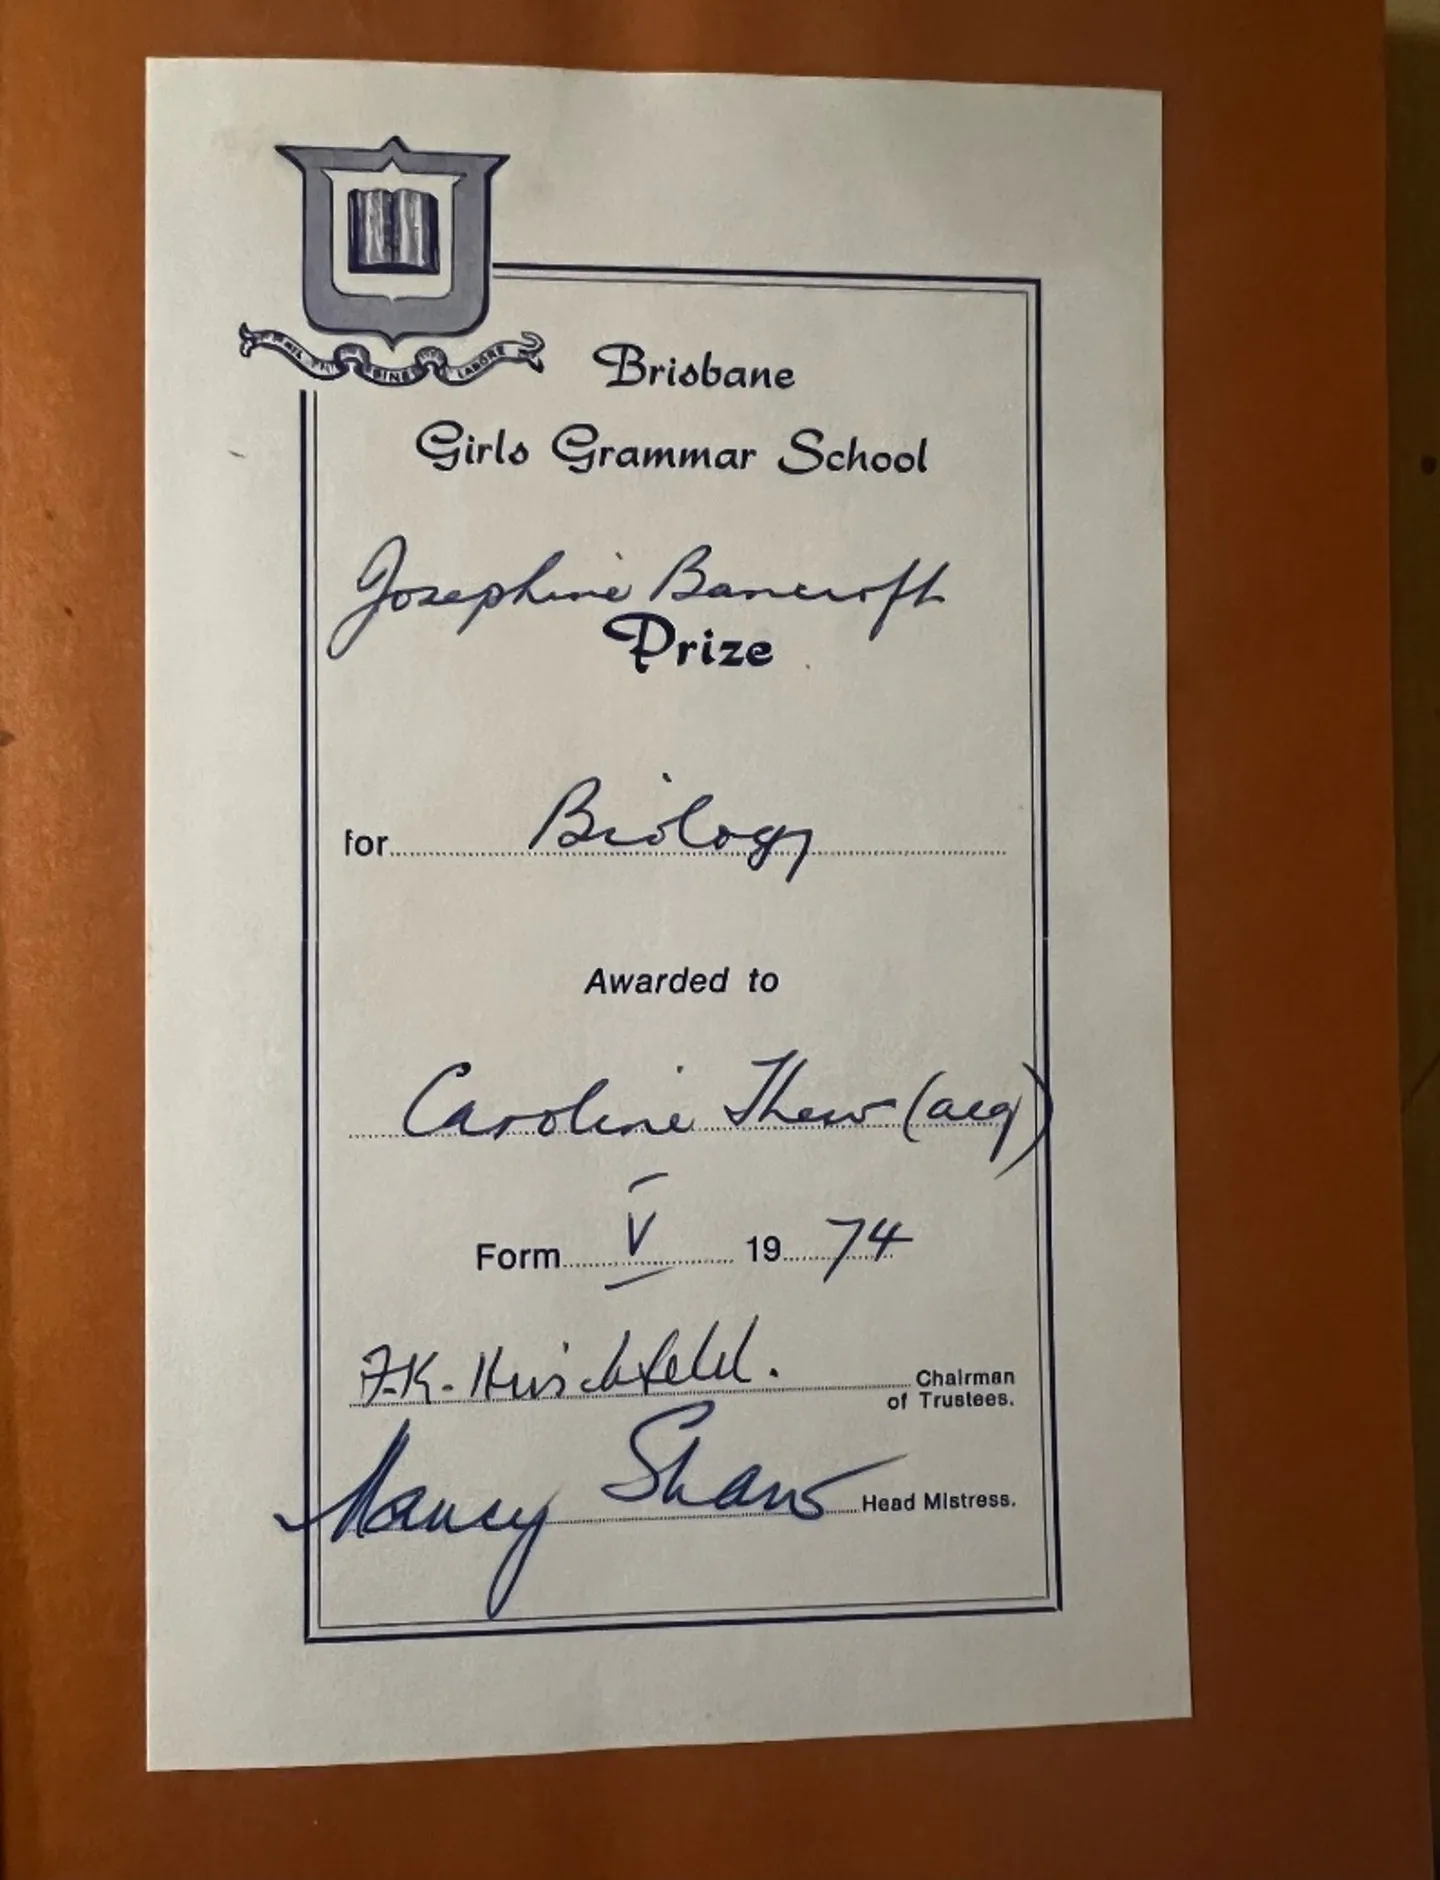 NIL SINE LABORE
Brisbane
Girls Grammar School
Josephine Bancroft
Prize
for Biology
Awarded to
Caroline Thew (aeq)
Form V 1974
F.K. Hirschfeld. Chairman
of Trustees.
Nancy Shaw Head Mistress.